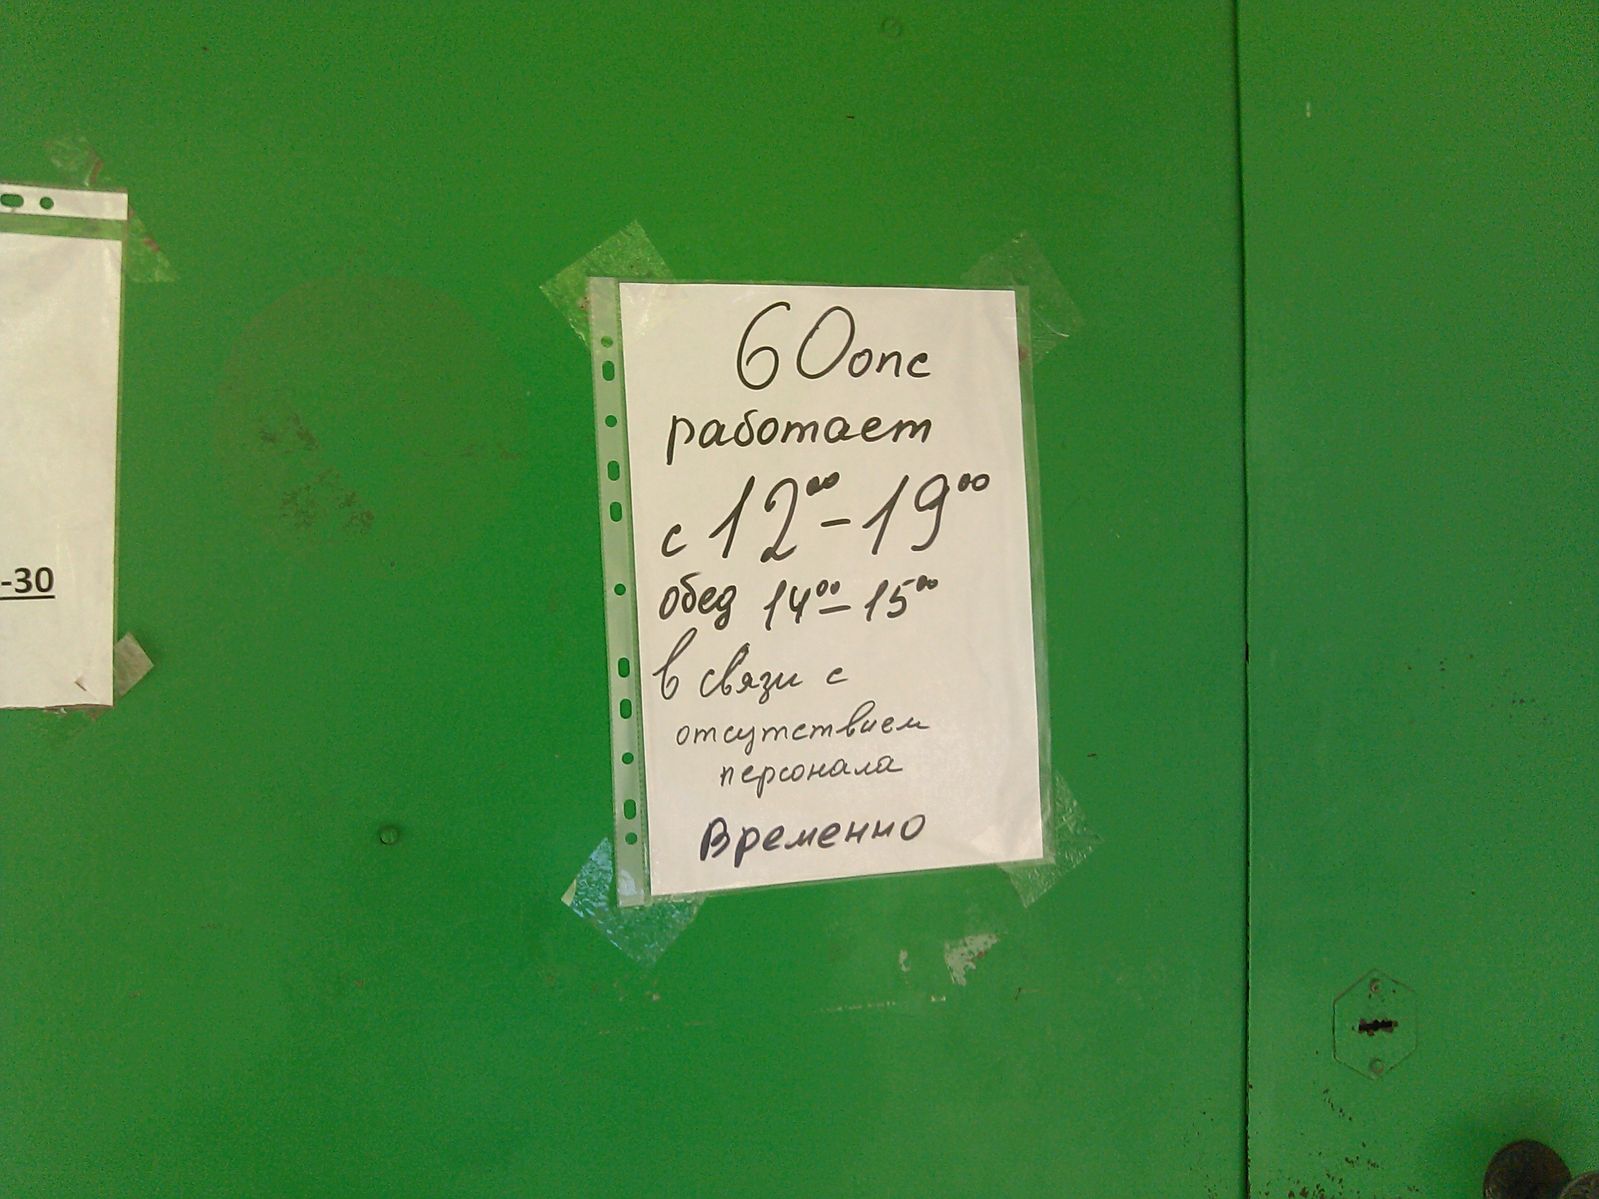 -30
60 опс
работает
с 12⁰⁰ – 19⁰⁰
обед 14⁰⁰ – 15⁰⁰
в связи с
отсутствием
персонала
Временно